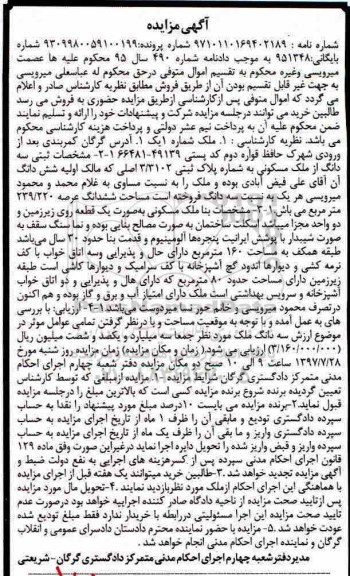 آگهی مزایده
شماره نامه : ۹۷۱۰۱۱۰۱۶۹۴۰۲۱۸۹ شماره پرونده:۹۳۰۹۹۸۰۰۵۹۱۰۰۱۹۹ شماره
بایگانی:۹۵۱۳۴۸ به موجب دادنامه شماره ۴۹۰ سال ۹۵ محکوم علیه ها عصمت
میرویسی وغیره محکوم به تقسیم اموال متوفی درحق محکوم له عباسعلی میرویسی
به جهت غیر قابل تقسیم بودن آن از طریق فروش مطابق نظریه کارشناس صادر و اعلام
می گردد که اموال متوفی پس ازکارشناسی ازطریق مزایده حضوری به فروش می رسد
طالبین خرید می توانند درجلسه مزایده شرکت و پیشنهادات خود را ارائه و تسلیم نمایند
ضمن محکوم علیه آن به پرداخت نیم عشر دولتی و پرداخت هزینه کارشناسی محکوم
می باشد. نظریه کارشناسی : ۱. ملک شماره ۱یک ۱. آدرس گرگان کمربندی بعد از
ورودی شهرک حافظ قواره دوم کد پستی ۴۹۱۳۹-۶۶۴۸۱ ۱-۲- مشخصات ثبتی سه
دانگ از ملک مسکونی به شماره پلاک ثبتی ۳/۳۱۰۲ اصلی که مالک اولیه شش دانگ
آن آقای علی فیض آبادی بوده و ملک را به نسبت مساوی به غلام محمد و محمود
میرویسی هر یک به نسبت سه دانگ فروخته است مساحت ششدانگ عرصه ۲۳۹/۲۲۰
متر مربع می باش ۱-۳- مشخصات بنا ملک مسکونی به‌صورت یک قطعه روی زیرزمین و
دو واحد مجزا میباشد اسکلت ساختمان به صورت مصالح بنایی بوده و نما سنگ سقف به
صورت شیبدار با پوشش ایرانیت پنجره‌ها آلومینیوم و قدمت بنا حدود ۲۰ سال می‌باشد
طبقه همکف به مساحت ۱۶۰ مترمربع دارای حال و پذیرایی وسه اتاق خواب با کف
نرمه کشی و دیوارها اندود گچ آشپزخانه با کف سرامیک و دیوارها کاشی است طبقه
زیرزمین دارای مساحت حدود ۸۰ مترمربع که دارای هال و پذیرایی و دو اتاق خواب
آشپزخانه و سرویس بهداشتی است ملک دارای امتیاز آب و برق و گاز بوده و هم اکنون
درتصرف محمود میرویسی و خانم حور نسا میردوست می‌باشد ۱-۴- ارزیابی: با بررسی
های به عمل آمده و با توجه به موقعیت مساحت و با درنظر گرفتن تمامی عوامل موثر در
موضوع ارزش سه دانگ ملک مورد نظر جمعا سه میلیارد و یکصد و شصت میلیون ریال
(۳/۱۶۰/۰۰۰/۰۰۰) ارزیابی می شود.( زمان و مکان مزایده) زمان مزایده روز شنبه مورخ
۱۳۹۷/۷/۲۸ ساعت ۹ الی ۱۰ صبح در مکان مزایده دفتر شعبه چهارم اجرای احکام
مدنی متمرکز دادگستری گرگان شرایط مزایده :۱- مزایده ازمبلغی که توسط کارشناس
تعیین گردیده برنده شروع برنده مزایده کسی است که بالاترین مبلغ را درجلسه مزایده
قبول نماید.۲-برنده مزایده می بایست ۱۰درصد مبلغ مورد پیشنهاد را نقدا به حساب
سپرده دادگستری تودیع و مابقی آن را ظرف ۱ ماه از تاریخ مزایده به حساب
سپرده دادگستری واریز و ما بقی آن را ظرف یک ماه از تاریخ مزایده به حساب
سپرده واریز و قبض واریز شده را تحویل دایره اجرا نماید درغیراین صورت وفق ماده ۱۲۹
قانون اجرای احکام مدنی سپرده پس از کسرهزینه های اجرایی به نفع دولت ضبط و
آگهی مزایده تجدید خواهد شد .۳-طالبین خرید میتوانند یک هفته قبل از اجرای مزایده
با هماهنگی این اجرای احکام ازملک مورد نظربازدید نمایند .۴-تحویل مال مورد مزایده
پس ازتایید صحت مزایده از ناحیه دادگاه صادر کننده اجراییه خواهد بود درصورت عدم
تایید صحت مزایده این اجرا مسئولیتی دررابطه با خریدار ندارد فقط مبلغ تودیع شده
عودت خواهد شد .۵- مزایده با حضور نماینده محترم دادستان دادسرای عمومی و انقلاب
گرگان و نماینده اجرای احکام مدنی انجام خواهد شد .
مدیردفترشعبه چهارم اجرای احکام مدنی متمرکز دادگستری گرگان-شریعتی